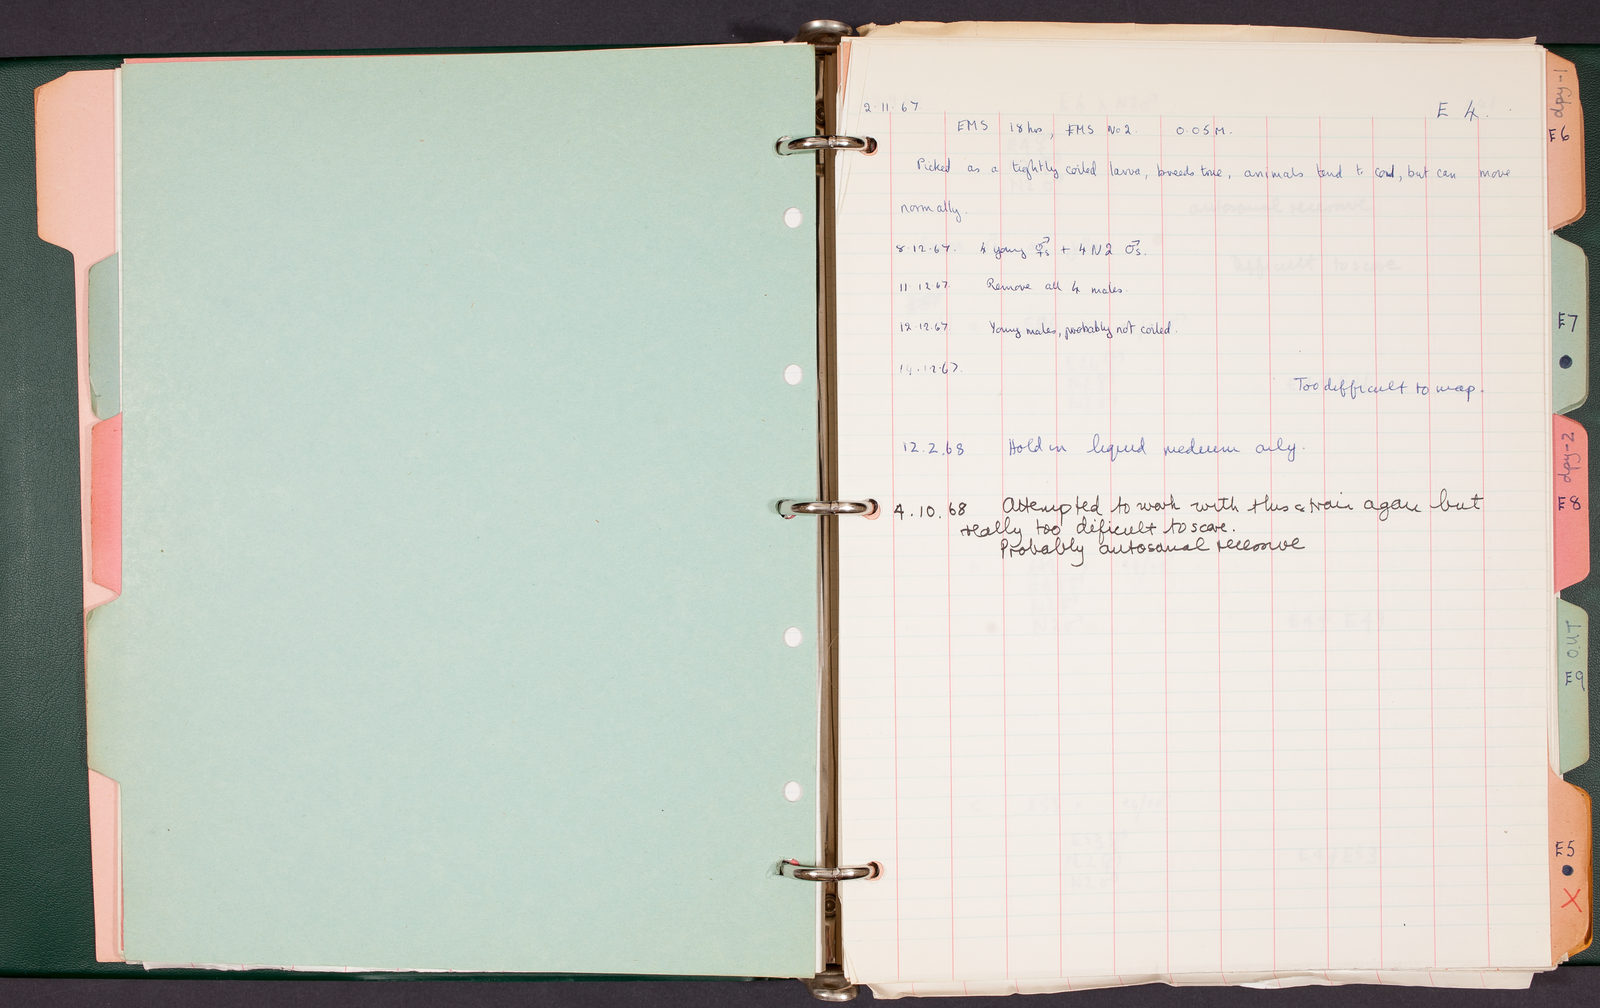 2.11.67
E 4.
EMS 18 hrs, EMS No 2. 0.05 M.
Picked as a tightly coiled larva, breeds true, animals tend to coil, but can move
normally.
8.12.67. 4 young ⚥s + 4 N2 ♂s.
11.12.67. Remove all 4 males.
12.12.67. Young males, probably not coiled.
14.12.67.
Too difficult to map.
12.2.68 Hold in liquid medium only.
4.10.68 Attempted to work with this strain again but
really too dificult to score.
Probably autosomal recessive
dpy-1
E6
E7
dpy-2
E8
OUT
E9
E5
X